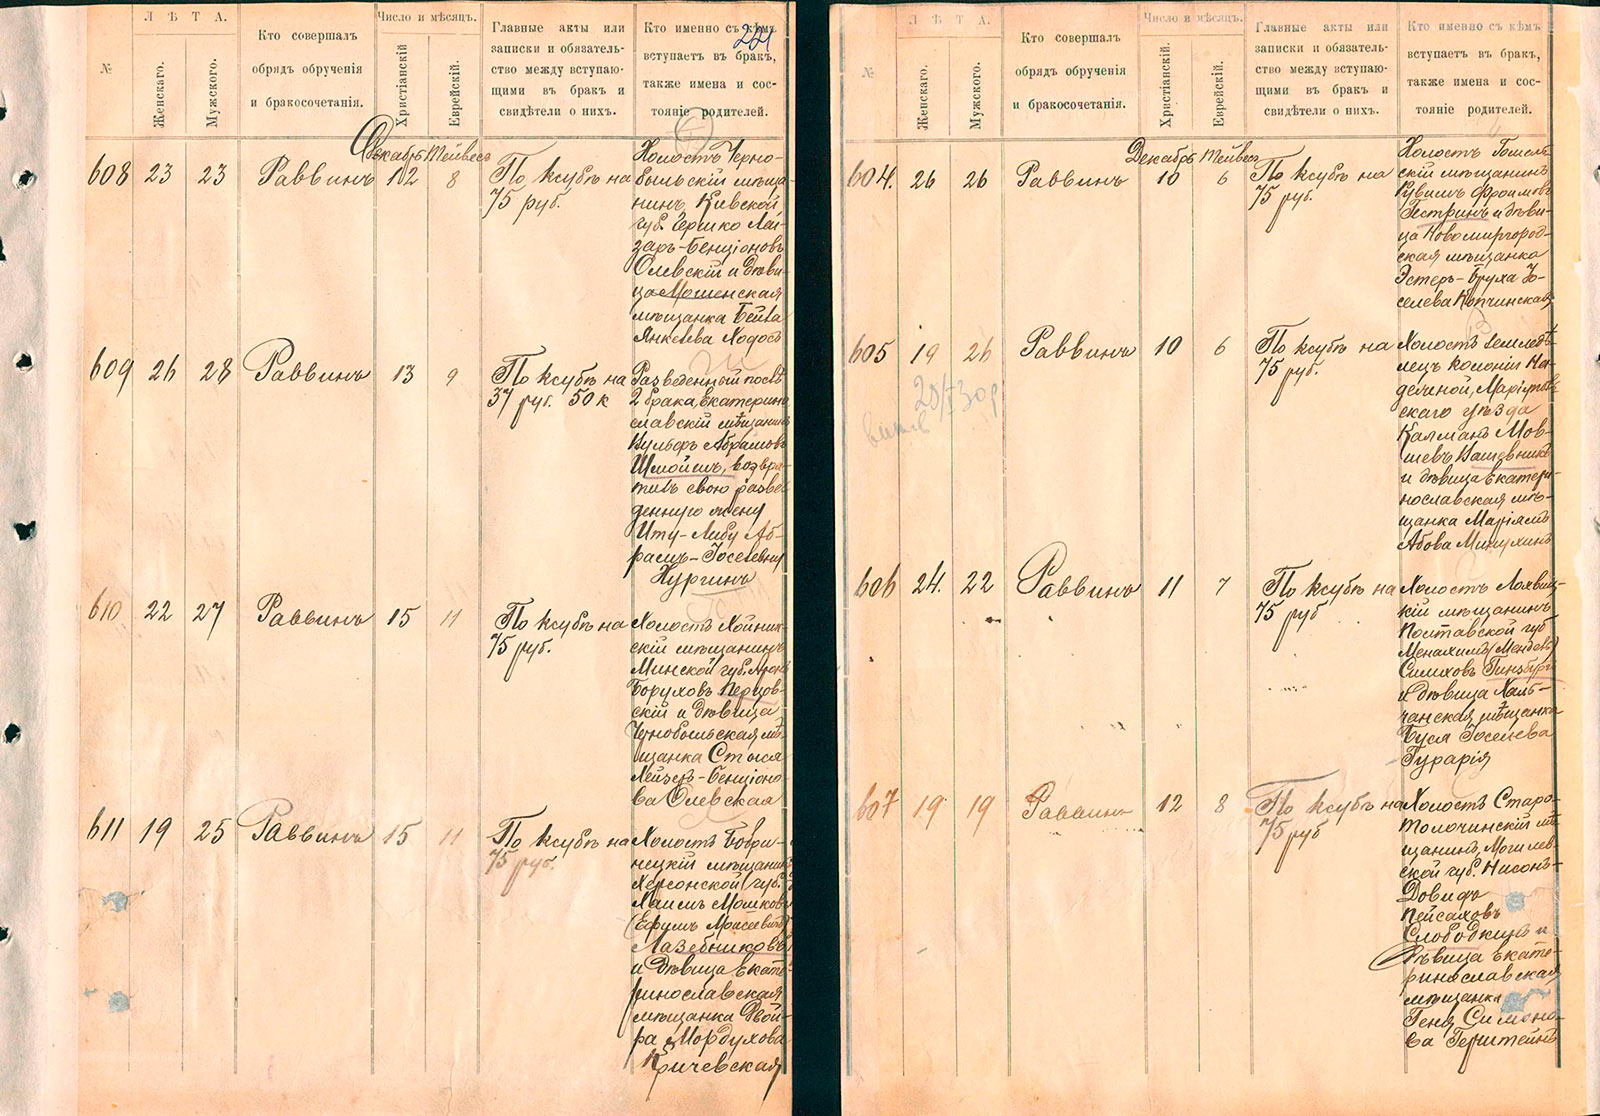 221
№
Л Ѣ Т А.
Женскаго.
Мужского.
Кто совершалъ
обрядъ обрученія
и бракосочетанія.
Число и мѣсяцъ.
Христіанскій
Еврейскій.
Главные акты или
записки и обязатель-
ство между вступаю-
щими въ бракъ и
свидѣтели о нихъ.
Кто именно съ кѣмъ
вступаетъ въ бракъ,
также имена и сос-
тояніе родителей.
Декабрь Тейвесъ
608 23 23 Раввинъ 12 8
По ксубѣ на
75 руб.
Холостъ Черно-
быльскій мѣща-
нинъ, Кіевской
губ. Гершко Лей-
заръ-Бенціоновъ
Олевскій и дѣви-
ца Мошенская
мѣщанка Бейла
Янкелева Ходосъ
609 26 28 Раввинъ 13 9
По ксубѣ на
37 руб. 50 к
Разведенный послѣ
2 брака, Екатерино
славскій мѣщанинъ
Абрамовъ
возвра-
тилъ свою разве
денную жену
Иту-Либу Аб-
рамъ-Іоселевну
Нургинъ
610 22 27 Раввинъ 15 11
По ксубѣ на
75 руб.
Холостъ Хойник-
скій мѣщанинъ
Минской губ. Аронъ
Боруховъ Перцов-
скій и дѣвица
Чернобыльская мѣ
щанка Стыся
Лейзеръ-Бенціоно-
ва Олевская
611 19 25 Раввинъ 15 11
По ксубѣ на
75 руб.
Холостъ Бобри-
нецкій мѣщанинъ
Херсонской губ.
Хаимъ Мошков
(Ефимъ Моисеевичъ)
Лазебниковъ
и дѣвица Екате-
ринославская
мѣщанка Двой-
ра Мордухова
Кричевская
№
Л Ѣ Т А.
Женскаго.
Мужского.
Кто совершалъ
обрядъ обрученія
и бракосочетанія.
Число и мѣсяцъ.
Христіанскій
Еврейскій.
Главные акты или
записки и обязатель-
ство между вступаю-
щими въ бракъ и
свидѣтели о нихъ.
Кто именно съ кѣмъ
вступаетъ въ бракъ,
также имена и сос-
тояніе родителей.
Декабрь Тейвесъ
604. 26 26 Раввинъ 10 6
По ксубѣ на
75 руб.
Холостъ Гомель
скій мѣщанинъ
Рувимъ Фроимовъ
Гестринъ и дѣви-
ца Новомиргород-
ская мѣщанка
Эстеръ-Бруха Іо-
селева Копчинская
605 19 26 Раввинъ 10 6
По ксубѣ на
75 руб.
Холостъ Землед
лецъ колоніи На-
дечной, Маріупол
скаго уѣзда
Калманъ Мов-
шевъ
и дѣвица Екатери-
нославская мѣ-
щанка Маріямъ
Абова Минухинъ
606 24. 22 Раввинъ 11 7
По ксубѣ на
75 руб
Холостъ Лохвиц-
кій мѣщанинъ
Полтавской губ
Менахимъ (Мендель)
Симховъ Гинзбургъ
и дѣвица Халь-
чанская мѣщанка
Буся Іоселева
Гурарія
607 19 19 Раввинъ 12 8
По ксубѣ на
75 руб
Холостъ Старо-
Толочинскій мѣ
щанинъ, Могилев-
ской губ. Нисонъ-
Довидъ
Пейсаховъ
Слободкинъ и
дѣвица Екате-
ринославская
мѣщанка
Геня Симоно-
ва Герштейнъ